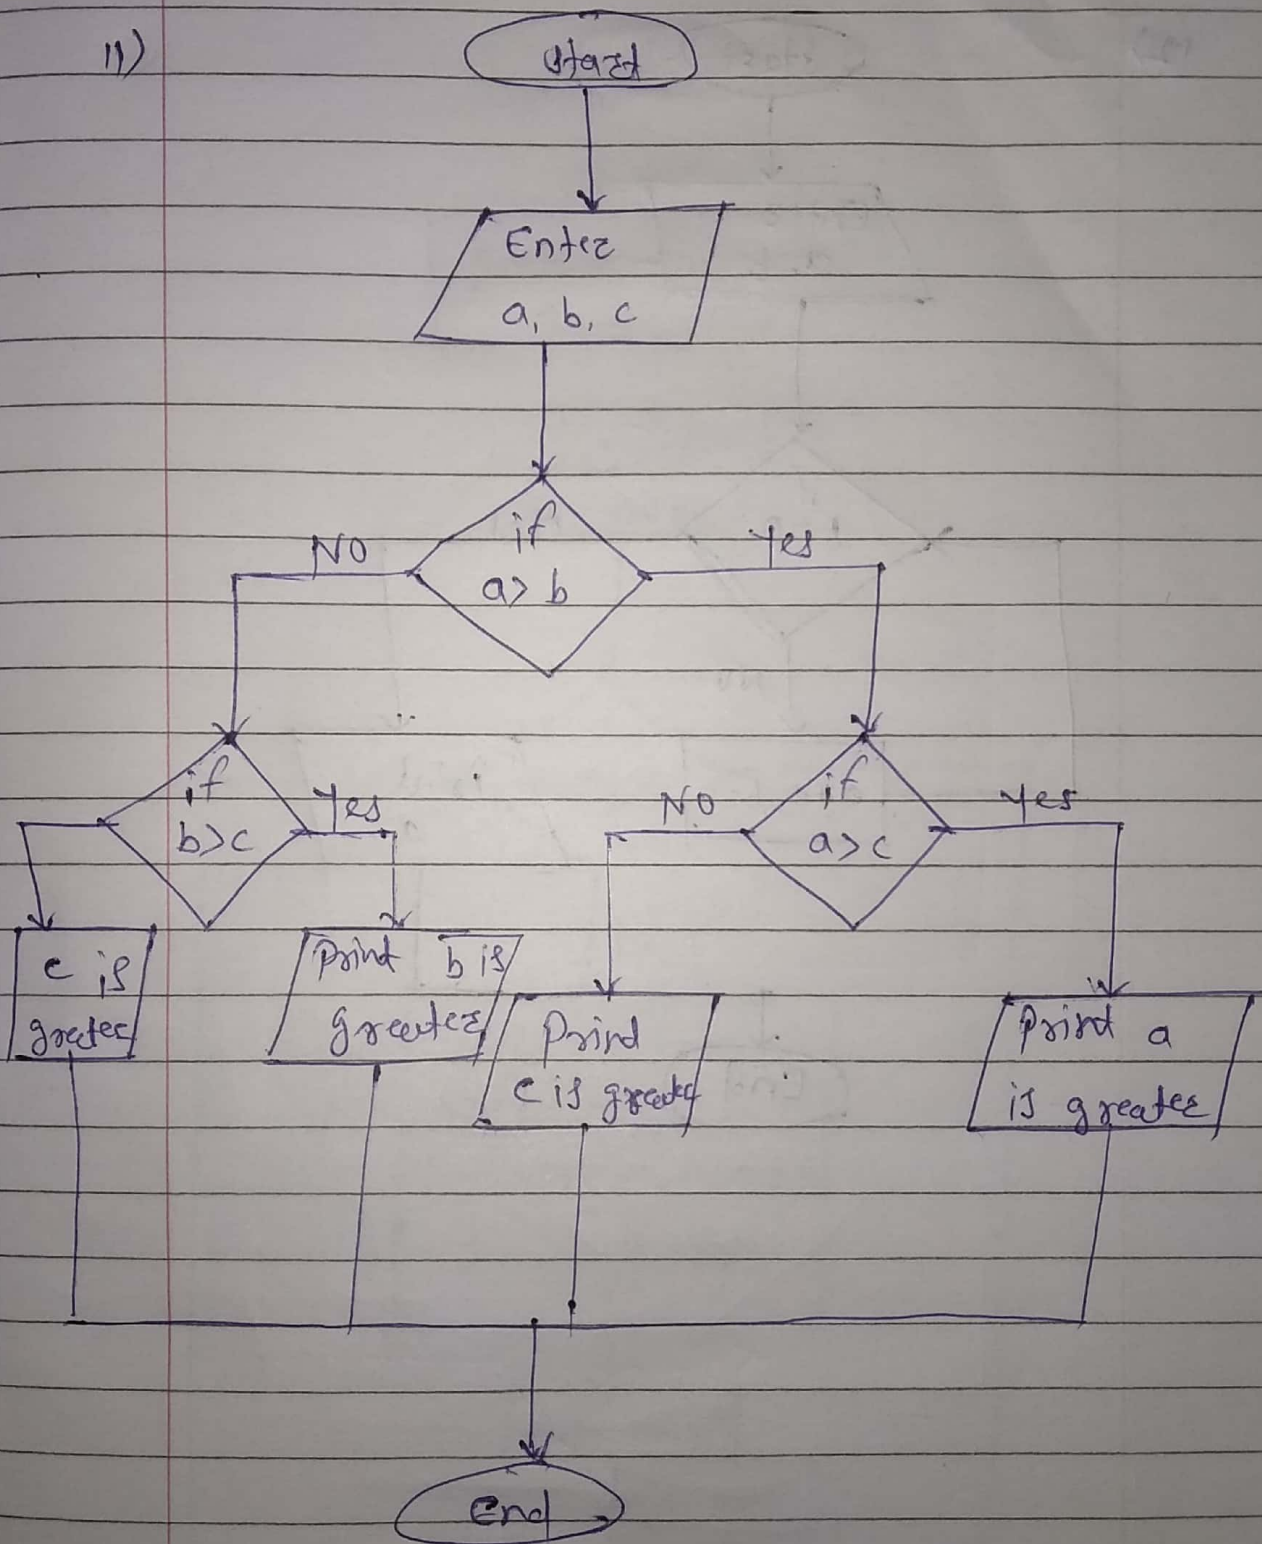 11)
start
Enter
a, b, c
if
a > b
NO
Yes
if
b>c
Yes
if
a>c
NO
Yes
c is
greater
Print b is
greater
Print
c is greater
Print a
is greater
End